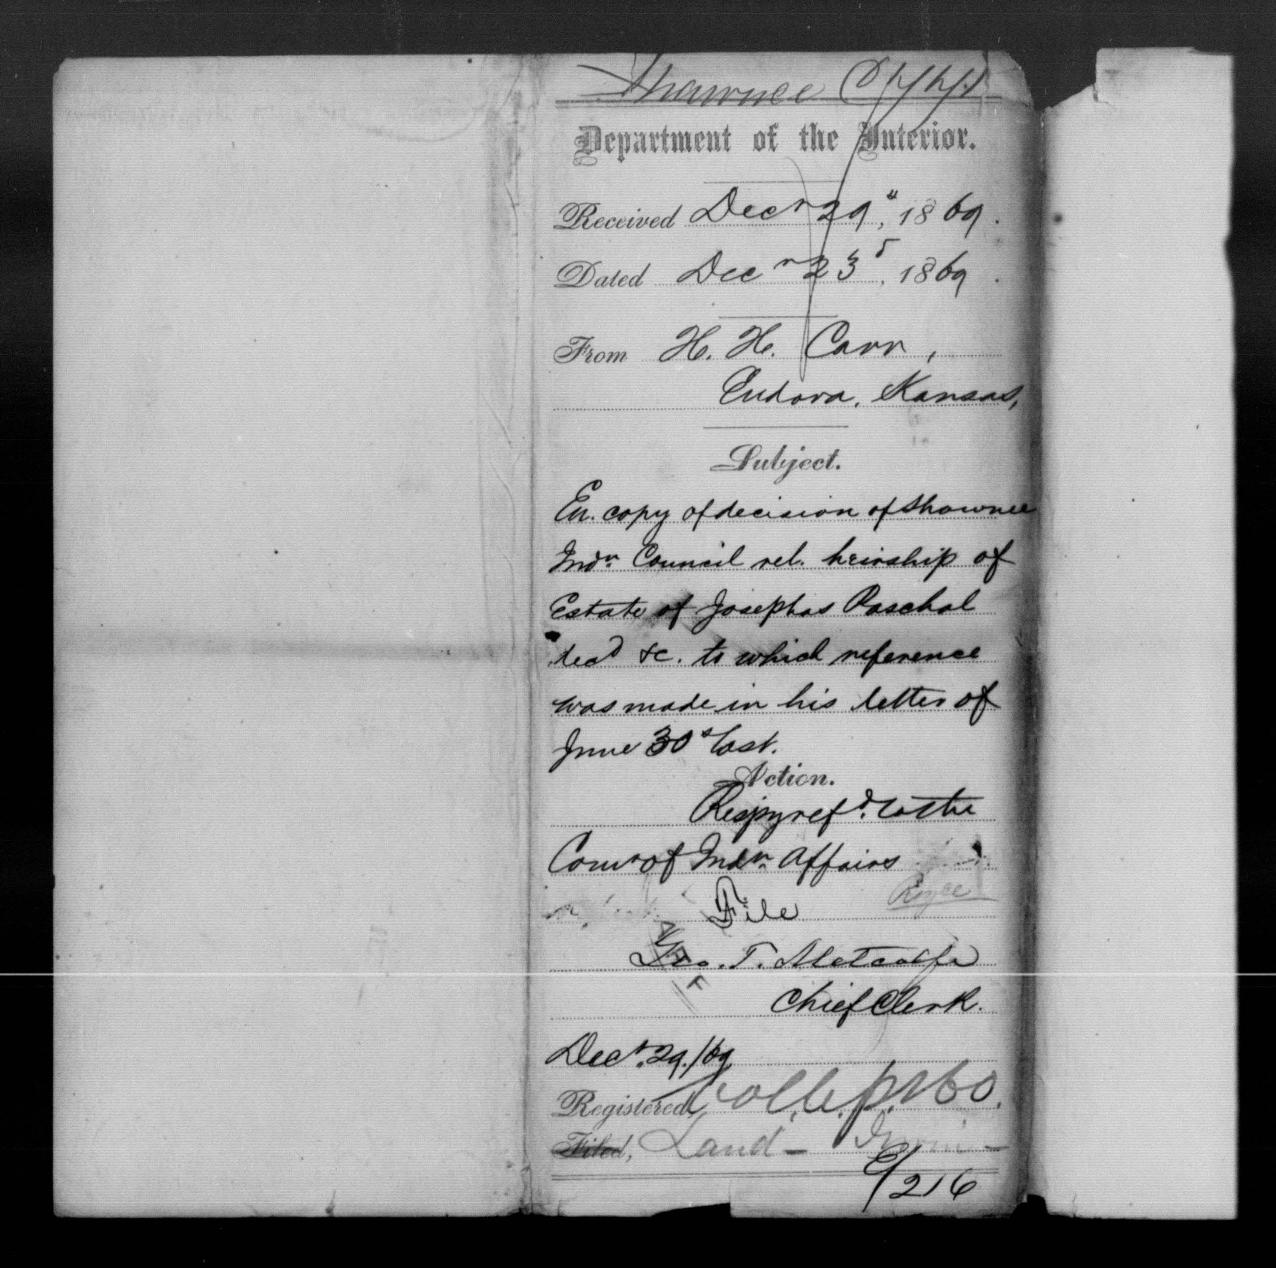 Shawnee
Department of the Interior.
Received Decr 29", 1869.
Dated Decr 23d, 1869.
From H. H. Carr,
Eudora, Kansas,
Subject.
En. copy of decision of Shawnee
Indn Council rel. heirship of
Estate of Josephas Paschal
decd &c. to which reference
was made in his letter of
June 30" last.
Action.
Respy refd. to the
Comr of Indn Affairs
Royce
File
Geo. T. Metcalfe
Chief Clerk.
Decr. 29./69
Registered, p. 160.
Filed, Land - Irvin -
C/216